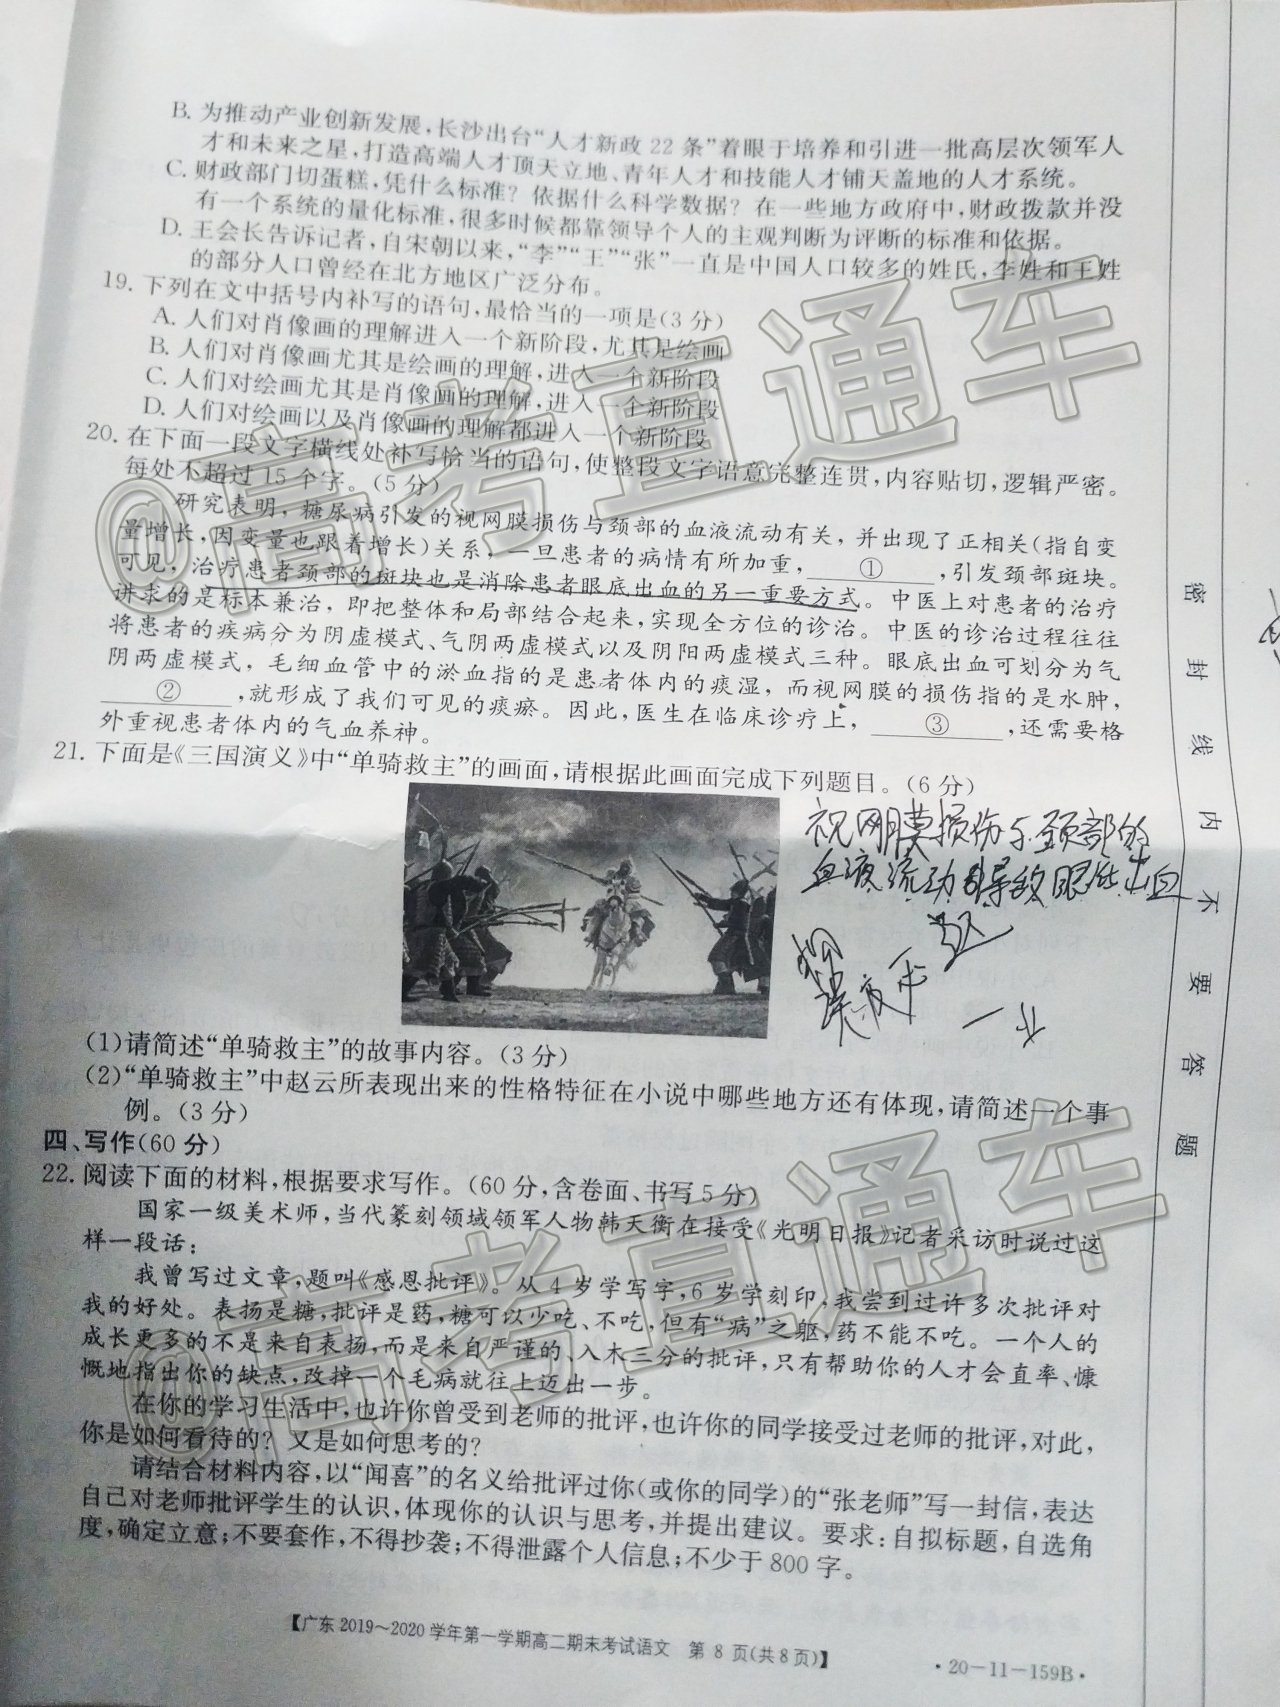 B. 为推动产业创新发展,长沙出台“人才新政22条”着眼于培养和引进一批高层次领军人
才和未来之星,打造高端人才顶天立地、青年人才和技能人才铺天盖地的人才系统。
C. 财政部门切蛋糕,凭什么标准？依据什么科学数据？在一些地方政府中,财政拨款并没
有一个系统的量化标准,很多时候都靠领导个人的主观判断为评断的标准和依据。
D. 王会长告诉记者,自宋朝以来,“李”“王”“张”一直是中国人口较多的姓氏,李姓和王姓
的部分人口曾经在北方地区广泛分布。
19. 下列在文中括号内补写的语句,最恰当的一项是(3分)
A. 人们对肖像画的理解进入一个新阶段,尤其是绘画
B. 人们对肖像画尤其是绘画的理解,进入一个新阶段
C. 人们对绘画尤其是肖像画的理解,进入一个新阶段
D. 人们对绘画以及肖像画的理解都进入一个新阶段
20. 在下面一段文字横线处补写恰当的语句,使整段文字语意完整连贯,内容贴切,逻辑严密。
每处不超过15个字。(5分)
研究表明,糖尿病引发的视网膜损伤与颈部的血液流动有关,并出现了正相关(指自变
量增长,因变量也跟着增长)关系,一旦患者的病情有所加重,①,引发颈部斑块。
可见,治疗患者颈部的斑块也是消除患者眼底出血的另一重要方式。中医上对患者的治疗
讲求的是标本兼治,即把整体和局部结合起来,实现全方位的诊治。中医的诊治过程往往
将患者的疾病分为阴虚模式、气阴两虚模式以及阴阳两虚模式三种。眼底出血可划分为气
阴两虚模式,毛细血管中的淤血指的是患者体内的痰湿,而视网膜的损伤指的是水肿,
②,就形成了我们可见的痰瘀。因此,医生在临床诊疗上,③,还需要格
外重视患者体内的气血养神。
21. 下面是《三国演义》中“单骑救主”的画面,请根据此画面完成下列题目。(6分)
视网膜损伤与颈部的
血液流动导致眼底出血
(1)请简述“单骑救主”的故事内容。(3分)
(2)“单骑救主”中赵云所表现出来的性格特征在小说中哪些地方还有体现,请简述一个事
例。(3分)
四、写作(60分)
22. 阅读下面的材料,根据要求写作。(60分,含卷面、书写5分)
国家一级美术师,当代篆刻领域领军人物韩天衡在接受《光明日报》记者采访时说过这
样一段话：
我曾写过文章,题叫《感恩批评》。从4岁学写字,6岁学刻印,我尝到过许多次批评对
我的好处。表扬是糖,批评是药,糖可以少吃、不吃,但有“病”之躯,药不能不吃。一个人的
成长更多的不是来自表扬,而是来自严谨的、入木三分的批评,只有帮助你的人才会直率、慷
慨地指出你的缺点,改掉一个毛病就往上迈出一步。
在你的学习生活中,也许你曾受到老师的批评,也许你的同学接受过老师的批评,对此,
你是如何看待的？又是如何思考的？
请结合材料内容,以“闻喜”的名义给批评过你(或你的同学)的“张老师”写一封信,表达
自己对老师批评学生的认识,体现你的认识与思考,并提出建议。要求：自拟标题,自选角
度,确定立意；不要套作,不得抄袭；不得泄露个人信息；不少于800字。
【广东2019～2020学年第一学期高二期末考试语文 第8页(共8页)】
·20-11-159B·
密封线内不要答题
@高考直通车
@高考直通车